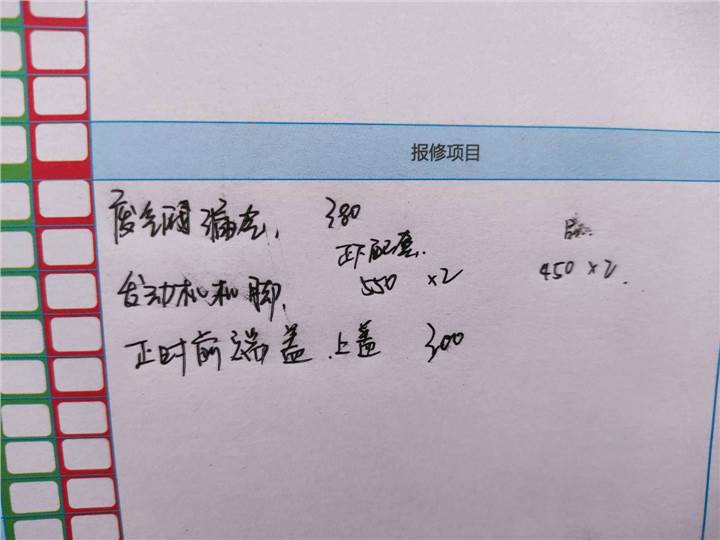 报修项目
废气阀漏气, 380
正下配套.
发动机机脚, 550 ×2 450 ×2.
正时前端盖.上盖 300